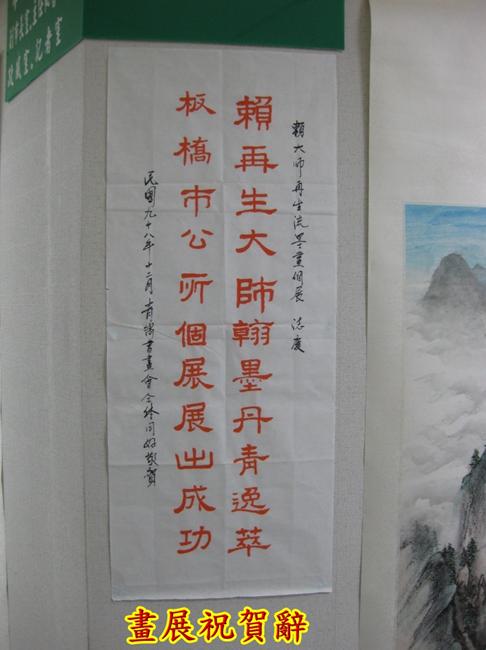 政風室、記者室
賴大師再生流墨畫個展 誌慶
賴再生大師翰墨丹青逸萃
板橋市公所個展展出成功
民國九十八年十二月書畫會全体同好敬賀
畫展祝賀辭